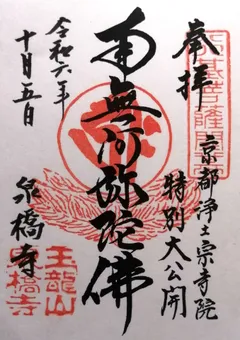 奉拝
京都浄土宗寺院
特別大公開
南無阿弥陀佛
令和六年
十月五日
泉橋寺
玉龍山
泉橋寺